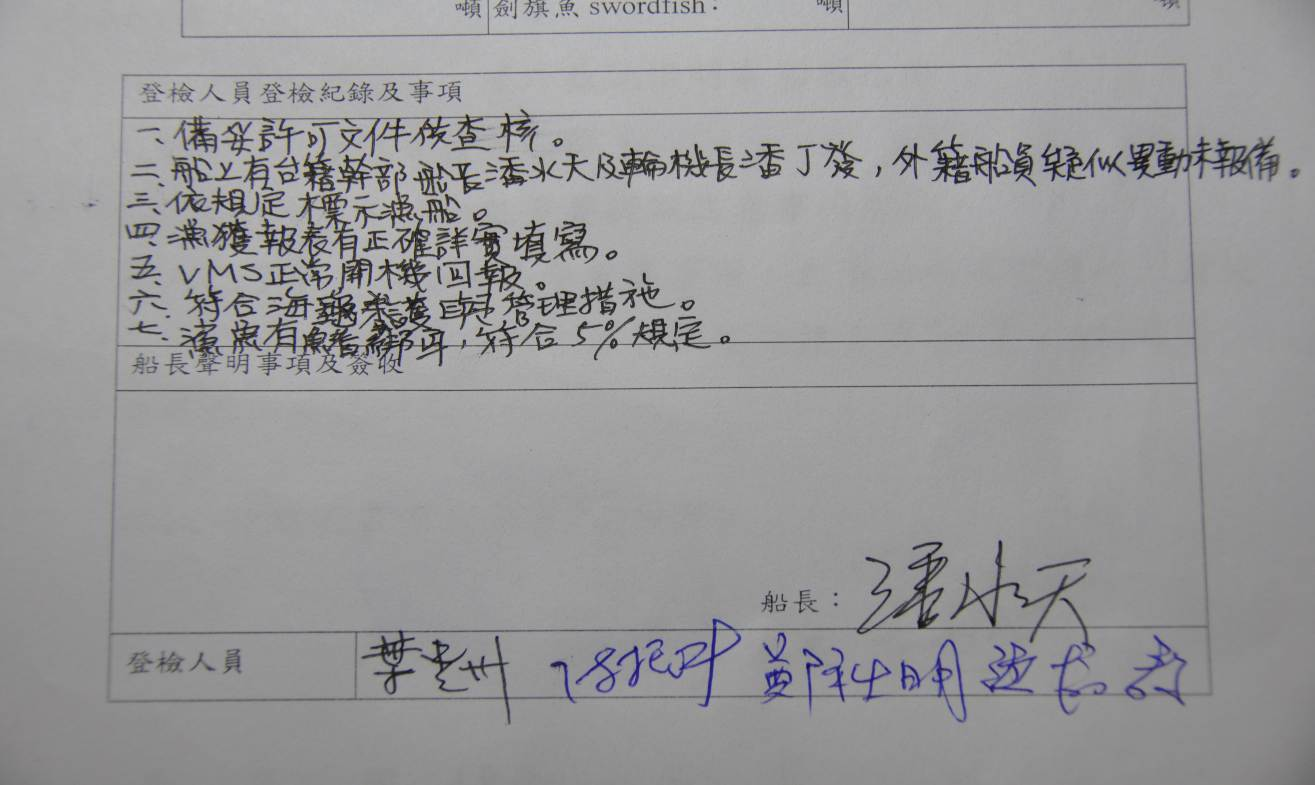 噸 劍旗魚 swordfish： 噸 噸
登檢人員登檢紀錄及事項
一、備妥許可文件供查核。
二、船上有台籍幹部船長潘水天及輪機長潘丁發，外籍船員疑似異動未報備。
三、依規定標示漁船。
四、漁獲報表有正確詳實填寫。
五、VMS正常開機回報。
六、符合海龜 管理措施。
七、鯊魚有魚鰭綁身，符合5%規定。
船長聲明事項及簽收
船長： 潘水天
登檢人員 葉 州 鄭 明